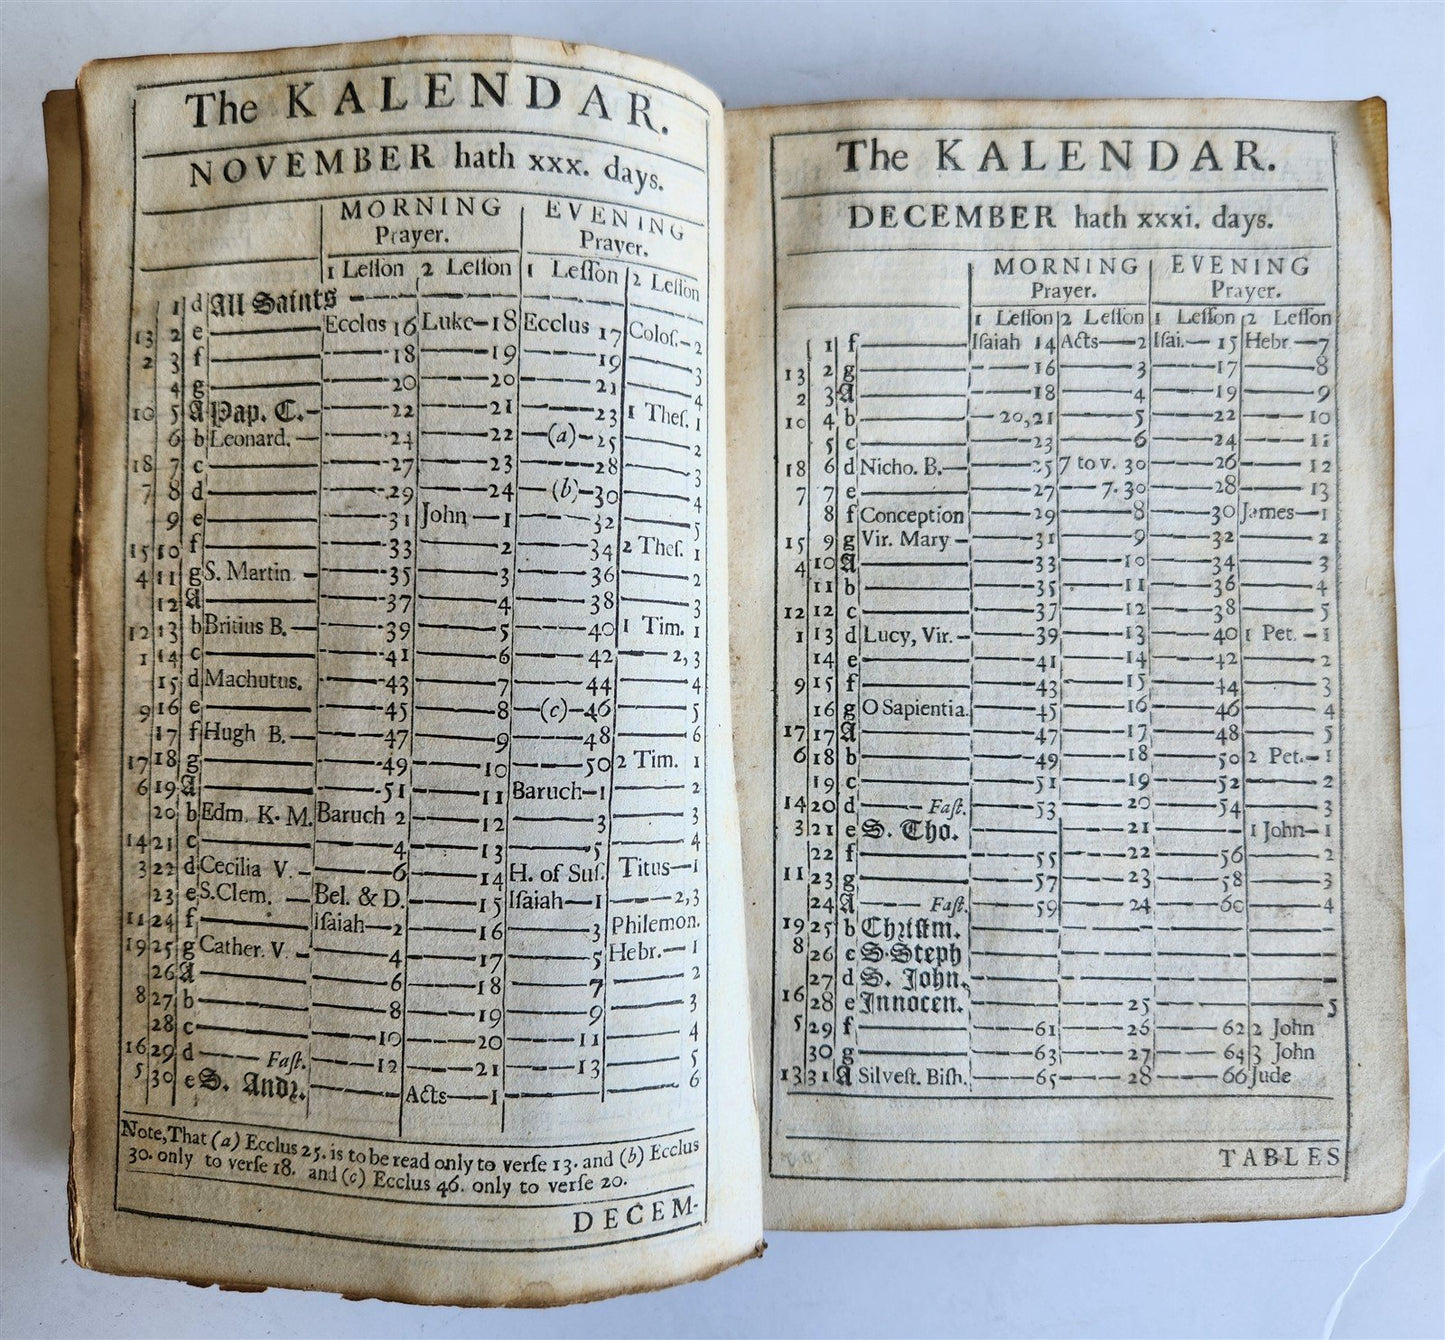 The KALENDAR.
NOVEMBER hath xxx. days.
MORNING Prayer. EVENING Prayer.
1 Leſſon 2 Leſſon 1 Leſſon 2 Leſſon
1 d All Saints
13 2 e Ecclus 16 Luke 18 Ecclus 17 Coloſ. 2
2 3 f 18 19 19 3
4 g 20 20 21 4
10 5 A Pap. C. 22 21 23 1 Theſ. 1
6 b Leonard. 24 22 (a) 25 2
18 7 c 27 23 28 3
7 8 d 29 24 (b) 30 4
9 e 31 John 1 32 5
15 10 f 33 2 34 2 Theſ. 1
4 11 g S. Martin 35 3 36 2
12 A 37 4 38 3
12 13 b Britius B. 39 5 40 1 Tim. 1
1 14 c 41 6 42 2,3
15 d Machutus. 43 7 44 4
9 16 e 45 8 (c) 46 5
17 f Hugh B. 47 9 48 6
17 18 g 49 10 50 2 Tim. 1
6 19 A 51 11 Baruch 1 2
20 b Edm. K. M. Baruch 2 12 3 3
14 21 c 4 13 5 4
3 22 d Cecilia V. 6 14 H. of Suſ. Titus 1
23 e S. Clem. Bel. & D. 15 Iſaiah 1 2,3
11 24 f Iſaiah 2 16 3 Philemon.
19 25 g Cather. V. 4 17 5 Hebr. 1
26 A 6 18 7 2
8 27 b 8 19 9 3
28 c 10 20 11 4
16 29 d Faſt. 12 21 13 5
5 30 e S. Andr. Acts 1 6
Note, That (a) Ecclus 25. is to be read only to verſe 13. and (b) Ecclus
30. only to verſe 18. and (c) Ecclus 46. only to verſe 20.
DECEM-
The KALENDAR.
DECEMBER hath xxxi. days.
MORNING Prayer. EVENING Prayer.
1 Leſſon 2 Leſſon 1 Leſſon 2 Leſſon
1 f Iſaiah 14 Acts 2 Iſai. 15 Hebr. 7
13 2 g 16 3 17 8
2 3 A 18 4 19 9
10 4 b 20,21 5 22 10
5 c 23 6 24 11
18 6 d Nicho. B. 25 7 to v. 30 26 12
7 7 e 27 7.30 28 13
8 f Conception 29 8 30 James 1
15 9 g Vir. Mary 31 9 32 2
4 10 A 33 10 34 3
11 b 35 11 36 4
12 12 c 37 12 38 5
1 13 d Lucy, Vir. 39 13 40 1 Pet. 1
14 e 41 14 42 2
9 15 f 43 15 44 3
16 g O Sapientia. 45 16 46 4
17 17 A 47 17 48 5
6 18 b 49 18 50 2 Pet. 1
19 c 51 19 52 2
14 20 d Faſt. 53 20 54 3
3 21 e S. Tho. 21 1 John 1
22 f 55 22 56 2
11 23 g 57 23 58 3
24 A Faſt. 59 24 60 4
19 25 b Chriſtm.
8 26 c S. Steph
27 d S. John.
16 28 e Innocen. 25 5
5 29 f 61 26 62 2 John
30 g 63 27 64 3 John
13 31 A Silveſt. Biſh. 65 28 66 Jude
TABLES